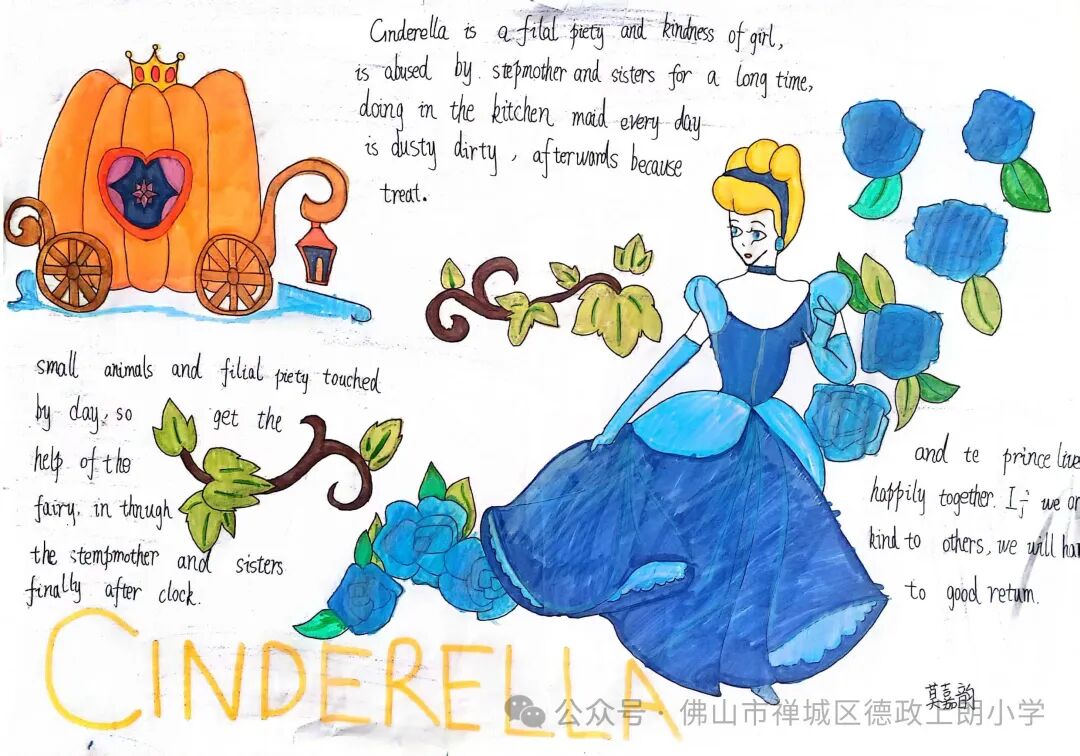 Cinderella is a filal piety and kindness of girl,
is abused by stepmother and sisters for a long time,
doing in the kitchen maid every day
is dusty dirty, afterwards because
treat.
small animals and filial piety touched
by day, so get the
help of the
fairy. in through
the stempmother and sisters
finally after clock.
and te prince live
happily together. If we ar
kind to others, we will ha
to good return.
CINDERELLA
莫嘉韵
公众号·佛山市禅城区德政上朗小学